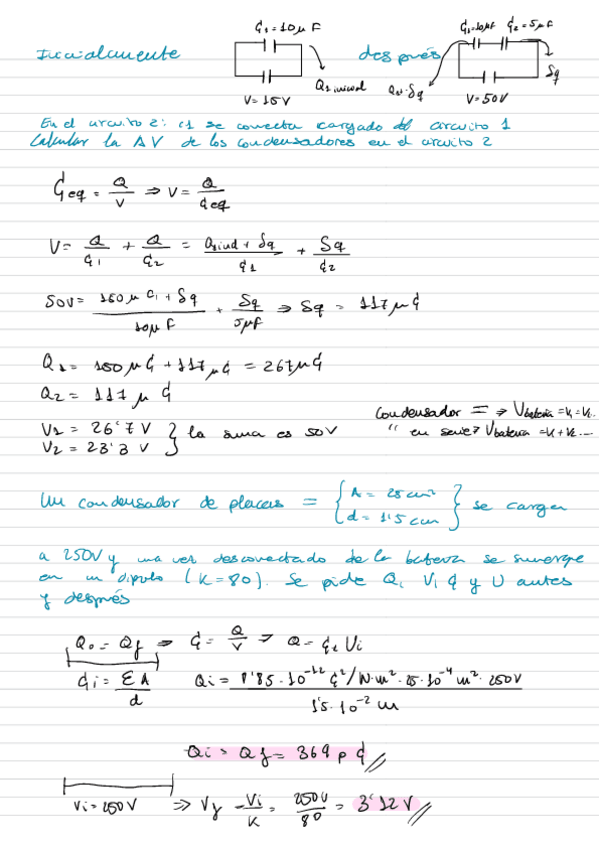 C₁ = 10 μF
C₁=10μF C₂ = 5μF
Inicialmente
después
δq
Q₁ inicial
Q₁i + δq
V = 15V
V = 50V
En el circuito 2: C1 se conecta cargado del circuito 1
Calcular la ΔV de los condensadores en el circuito 2
Ceq = Q/V ⇒ V = Q/Ceq
V = Q/C₁ + Q/C₂ = (Q₁inicial + δq)/C₁ + δq/C₂
50V = (150 μC + δq)/10μF + δq/5μF ⇒ δq = 117 μC
Q₁ = 150 μC + 117 μC = 267 μC
Q₂ = 117 μC
V₁ = 26'7 V
V₂ = 23'3 V } la suma es 50V
Condensador = ⇒ Vbateria = V₁ = V₂...
" en serie ⇒ Vbateria = V₁ + V₂ ...
Un condensador de placas = { A = 25 cm² d = 1'5 cm } se cargan
a 250V y una vez desconectado de la batería se sumerge
en un dipolo (K = 80). Se pide Q, V, C y U antes
y después
Q₀ = Qf ⇒ C = Q/V ⇒ Q = Ci Vi
Ci = εA/d Qi = (8'85 · 10⁻¹² C²/N·m² · 25 · 10⁻⁴ m² · 250V)/(1'5 · 10⁻² m)
Qi = Qf = 369 pC
Vi = 250V ⇒ Vf = Vi/K = 250V/80 = 3'12 V